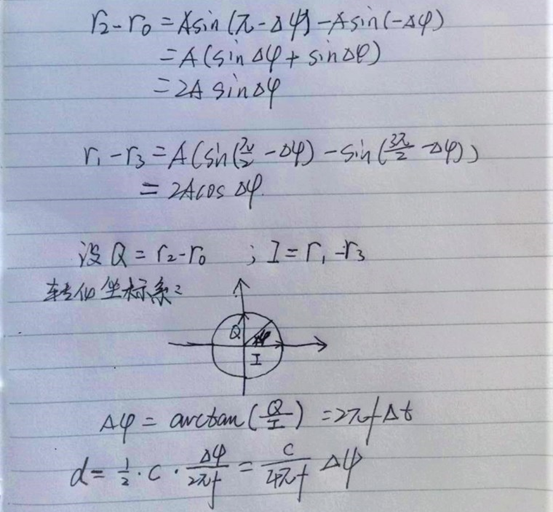 r₂-r₀ = Asin(π-Δφ)-Asin(-Δφ)
= A(sinΔφ+sinΔφ)
= 2A sinΔφ
r₁-r₃ = A(sin(π/2 -Δφ)-sin(3π/2 -Δφ))
= 2Acos Δφ.
设Q=r₂-r₀ ; I=r₁-r₃
坐标系:
Q Δφ
I
Δφ = arctan(Q/I) = 2πfΔt
d = 1/2·c·Δφ/2πf = c/4πf Δφ